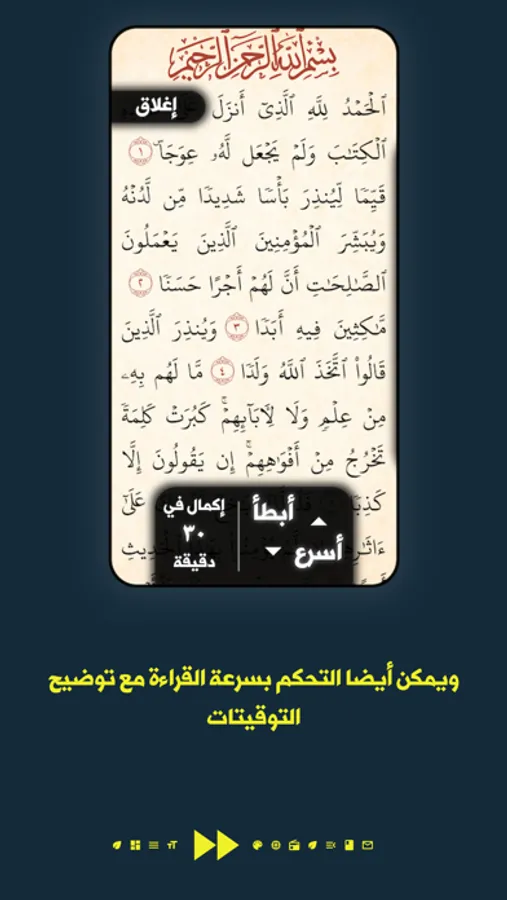 بِسْمِ ٱللَّهِ ٱلرَّحْمَٰنِ ٱلرَّحِيمِ
إغلاق
ٱلْحَمْدُ لِلَّهِ ٱلَّذِىٓ أَنزَلَ
ٱلْكِتَٰبَ وَلَمْ يَجْعَل لَّهُۥ عِوَجَاۜ ١
قَيِّمًا لِّيُنذِرَ بَأْسًا شَدِيدًا مِّن لَّدُنْهُ
وَيُبَشِّرَ ٱلْمُؤْمِنِينَ ٱلَّذِينَ يَعْمَلُونَ
ٱلصَّٰلِحَٰتِ أَنَّ لَهُمْ أَجْرًا حَسَنًا ٢
مَّٰكِثِينَ فِيهِ أَبَدًا ٣ وَيُنذِرَ ٱلَّذِينَ
قَالُوا۟ ٱتَّخَذَ ٱللَّهُ وَلَدًا ٤ مَّا لَهُم بِهِۦ
مِنْ عِلْمٍ وَلَا لِـَٔابَآئِهِمْ ۚ كَبُرَتْ كَلِمَةً
تَخْرُجُ مِنْ أَفْوَٰهِهِمْ ۚ إِن يَقُولُونَ إِلَّا
كَذِبًا عَلَىٰٓ
أبطأ
أسرع
إكمال في
٣٠
دقيقة
ويمكن أيضا التحكم بسرعة القراءة مع توضيح
التوقيتات